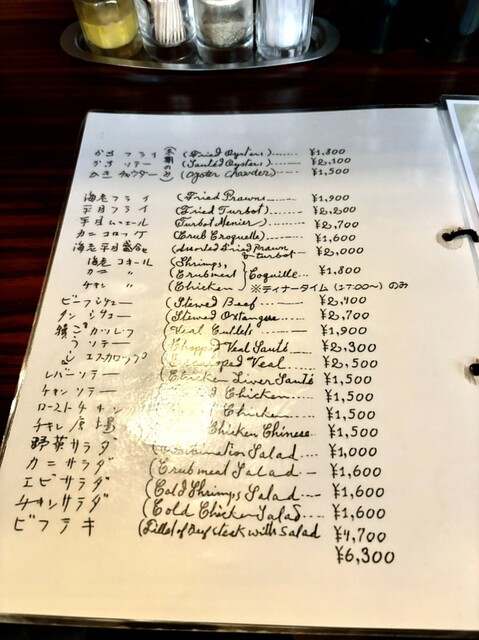 かき フライ (冬期のみ) (Fried Oysters)...... ¥1,800
かき ソテー (Sauted Oysters)...... ¥2,100
かき チャウダー (Oyster Chawder)...... ¥1,500
海老 フライ (Fried Prawns ¥1,900
平目 フライ (Fried Turbot) ¥2,200
平目 ムニエル (Turbot Menier) ¥2,700
カニ コロッケ (Crub Croquette) ¥1,600
海老平目盛合せ (Assorted Fried Prawn & turbot ¥2,000
海老 コキール (Shrimps,
カニ 〃 (Crubmeat Coquille ¥1,800
チキン 〃 (Chicken ※ディナータイム (17:00〜) のみ
ビーフシチュー (Stewed Beef ¥2,400
タン シチュー (Stewed Oxtangue ¥2,700
カツレツ (Veal Cutlets ¥1,900
〃 ソテー (Chopped Veal Sauté ¥2,300
〃 エスカロップ Veal ¥2,500
レバーソテー (Chicken Liver Sauté ¥1,500
チキン ソテー Chicken ¥1,500
ローストチキン Chicken ¥1,500
チキン Chicken Chinese ¥1,500
野菜サラダ (Combination Salad ¥1,000
カニサラダ (Crubmeat Salad ¥1,600
エビサラダ (Cold Shrimps Salad ¥1,600
チキンサラダ (Cold Chicken Salad ¥1,600
ビフテキ (Fillet of Beefsteak with Salad ¥4,700
¥6,300